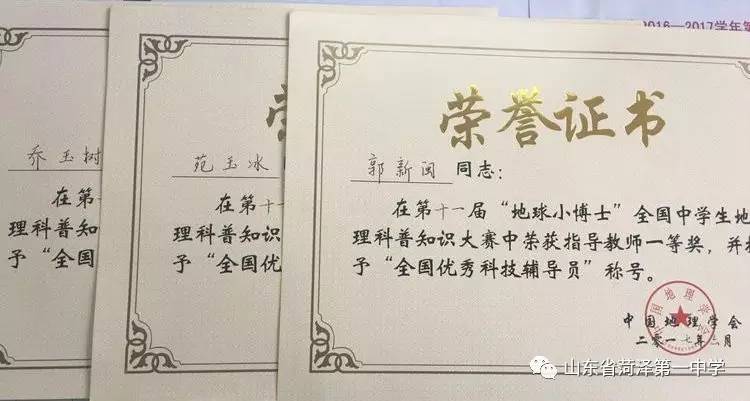 2016—2017学年第
荣誉证书
郭新闽 同志：
在第十一届“地球小博士”全国中学生地
理科普知识大赛中荣获指导教师一等奖，并授
予“全国优秀科技辅导员”称号。
中国地理学会
二零一七年六月
苑玉冰
在第十一
理科普知识
予“全国优
乔玉树
在第
理科普知
予“全国
山东省菏泽第一中学